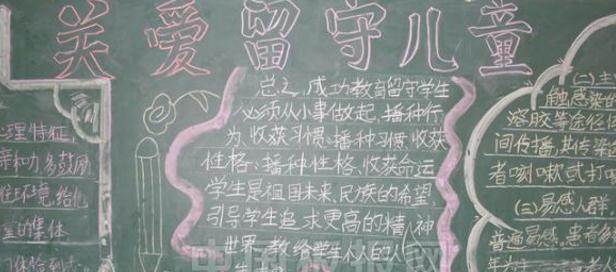 关爱留守儿童
心理特征,
亲和力,多鼓励
性环境,给他
的集体
总之,成功教育留守学生
必须从小事做起,播种行
为、收获习惯、播种习惯、收获
性格、播种性格、收获命运
学生是祖国未来、民族的希望,
引导学生追求更高的精神
世界,教给学生个人的人
触感染
溶胶等途径
间传播,其传染
者咳嗽或打
(三)易感人群
普遍易感,患者
中国板报网